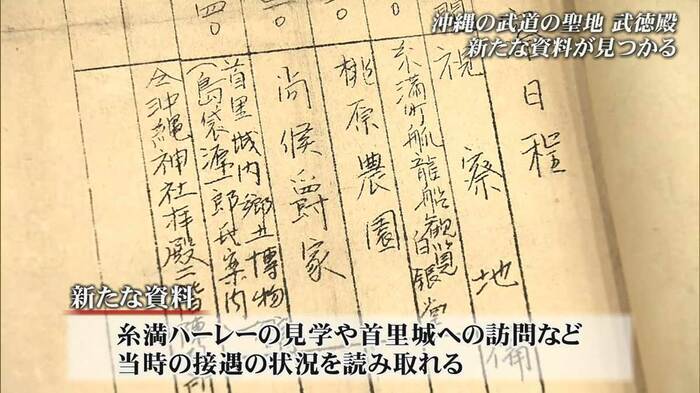 沖縄の武道の聖地 武徳殿
新たな資料が見つかる
日程
視察地
備
糸満町爬龍船観覧白銀堂
桃原農園
尚侯爵家
首里城内郷土博物
(島袋源一郎氏案内
仝沖縄神社拝殿二階
新たな資料
糸満ハーレーの見学や首里城への訪問など
当時の接遇の状況を読み取れる